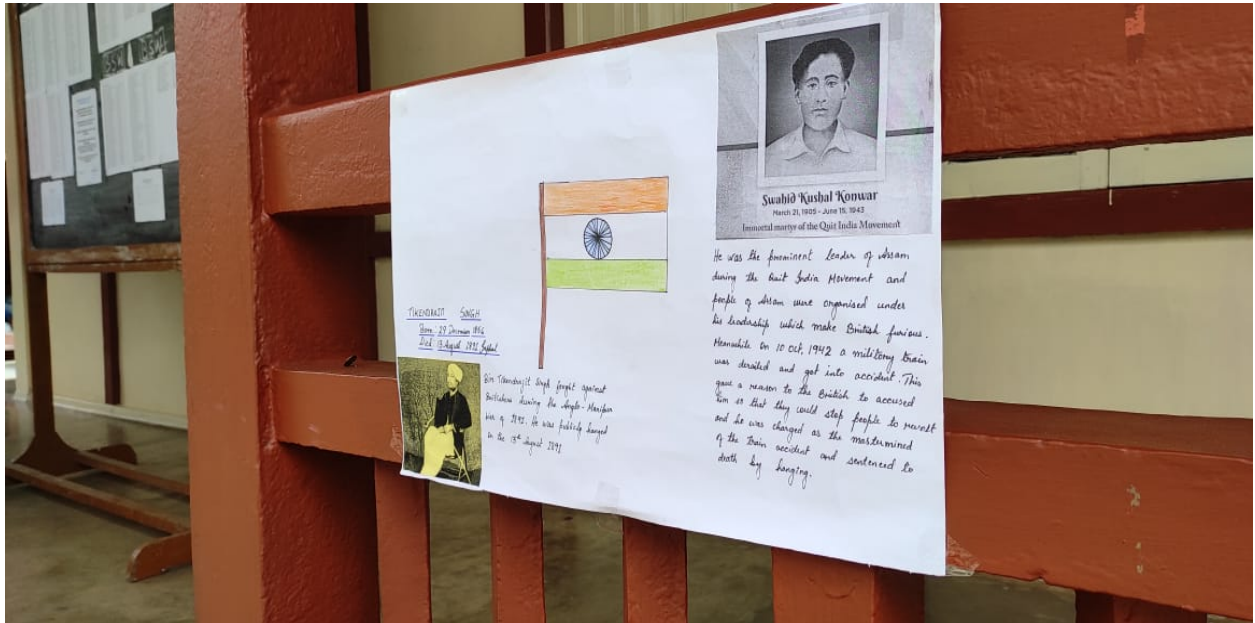 TIKENDRAJIT SINGH
Born: 29 December 1856
Died: 13 August 1891 Imphal
Bir Tikendrajit Singh fought against
Britishers during the Anglo-Manipur
War of 1891. He was publicly hanged
on the 13th August 1891
Swahid Kushal Konwar
March 21, 1905 - June 15, 1943
Immortal martyr of the Quit India Movement
He was the prominent leader of Assam
during the Quit India Movement and
people of Assam were organised under
his leadership which make British furious.
Meanwhile on 10 Oct, 1942 a military train
was derailed and got into accident. This
gave a reason to the British to accused
him so that they could stop people to revolt
and he was charged as the mastermined
of the train accident and sentenced to
death by hanging.